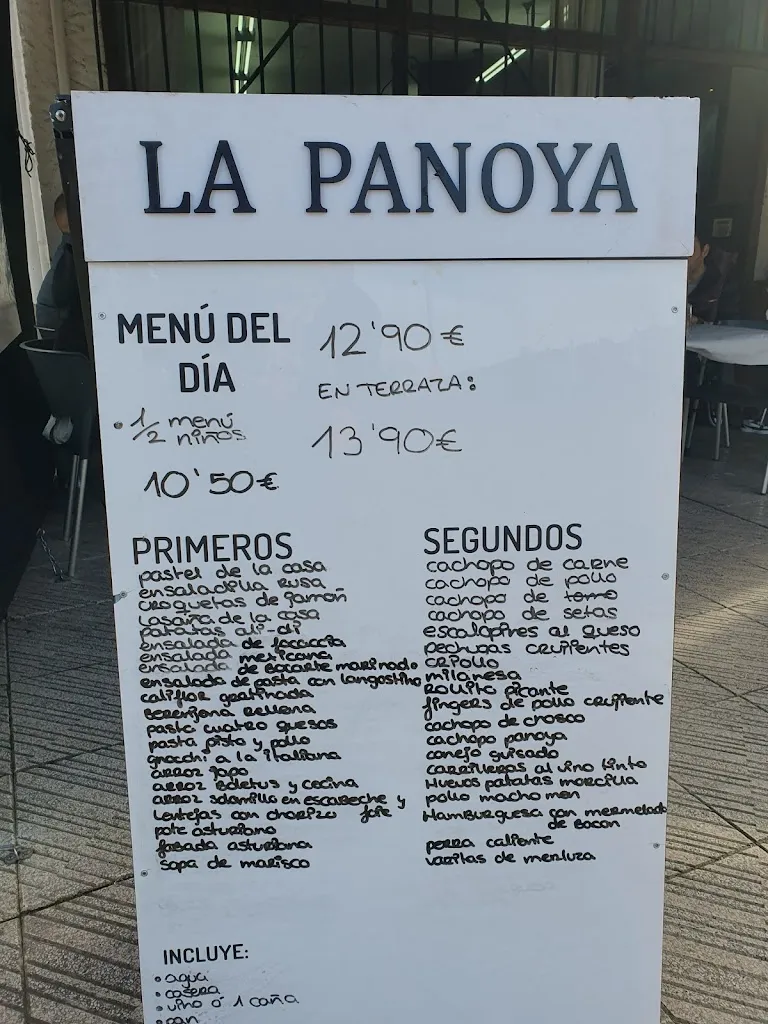 LA PANOYA
MENÚ DEL
DÍA
12'90€
EN TERRAZA:
13'90€
• 1/2 menú
niños
10'50€
PRIMEROS
pastel de la casa
ensaladilla rusa
croquetas de jamon
lasaña de la casa
patatas ali-oli
ensalada de focaccia
ensalada mexicana
ensalada de bocarte marinado
ensalada de pasta con langostino
coliflor gratinada
berenjena rellena
pasta cuatro quesos
pasta pisto y pollo
gnocchi a la italiana
arroz
arroz boletus y cecina
arroz solomillo en escabeche y
lentejas con chorizo
pote asturiano
fabada asturiana
sopa de marisco
SEGUNDOS
cachopo de carne
cachopo de pollo
cachopo de tomo
cachopo de setas
escalopines al queso
pechugas crujientes
criollo
milanesa
rollito picante
fingers de pollo crujiente
cachopo de chosco
cachopo panoya
conejo guisado
carrilleras al vino tinto
Huevos patatas morcilla
pollo macho men
Hamburguesa con mermelada
de bacon
perra caliente
varitas de merluza
INCLUYE:
• agua
• casera
• vino ó 1 caña
• pan